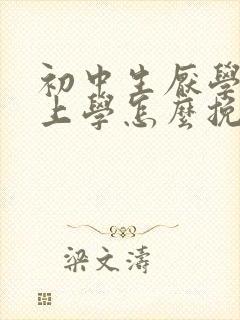 初中生厭學
上學怎麼挽
梁文濤